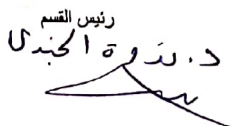 رئيس القسم
د. ندوة الجندي